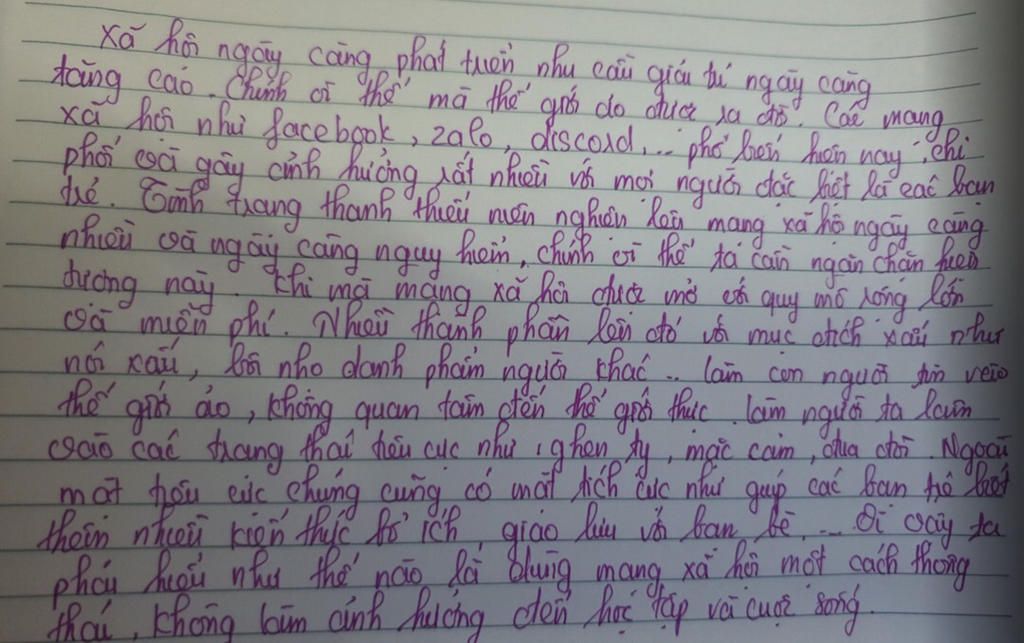 Xã hội ngày càng phát triển nhu cầu giải trí ngày càng
tăng cao. Chính vì thế mà thế giới ảo được ra đời. Các mạng
xã hội như facebook, zalo, discord,... phổ biến hiện nay, chi
phối và gây ảnh hưởng rất nhiều với mọi người đặc biệt là các bạn
trẻ. Tình trạng thanh thiếu niên nghiện lên mạng xã hộ ngày càng
nhiều và ngày càng nguy hiểm, chính vì thế ta cần ngăn chặn hiện
tượng này. Khi mà mạng xã hội được mở với quy mô rộng lớn
và miễn phí. Nhiều thành phần lên đó với mục đích xấu như
nói xấu, bôi nhọ danh phẩm người khác .. làm con người tin vào
thế giới ảo, không quan tâm đến thế giới thực. làm người ta luôn
vào các trạng thái tiêu cực như : ghen tỵ, mặc cảm, đua đòi. Ngoài
mặt tiêu cực chúng cũng có mặt tích cực như giúp các bạn trẻ biết
thêm nhiều kiến thức bổ ích, giao lưu với bạn bè,... Vì vậy ta
phải hiểu như thế nào là dùng mạng xã hội một cách thông
thái, không làm ảnh hưởng đến học tập và cuộc sống.